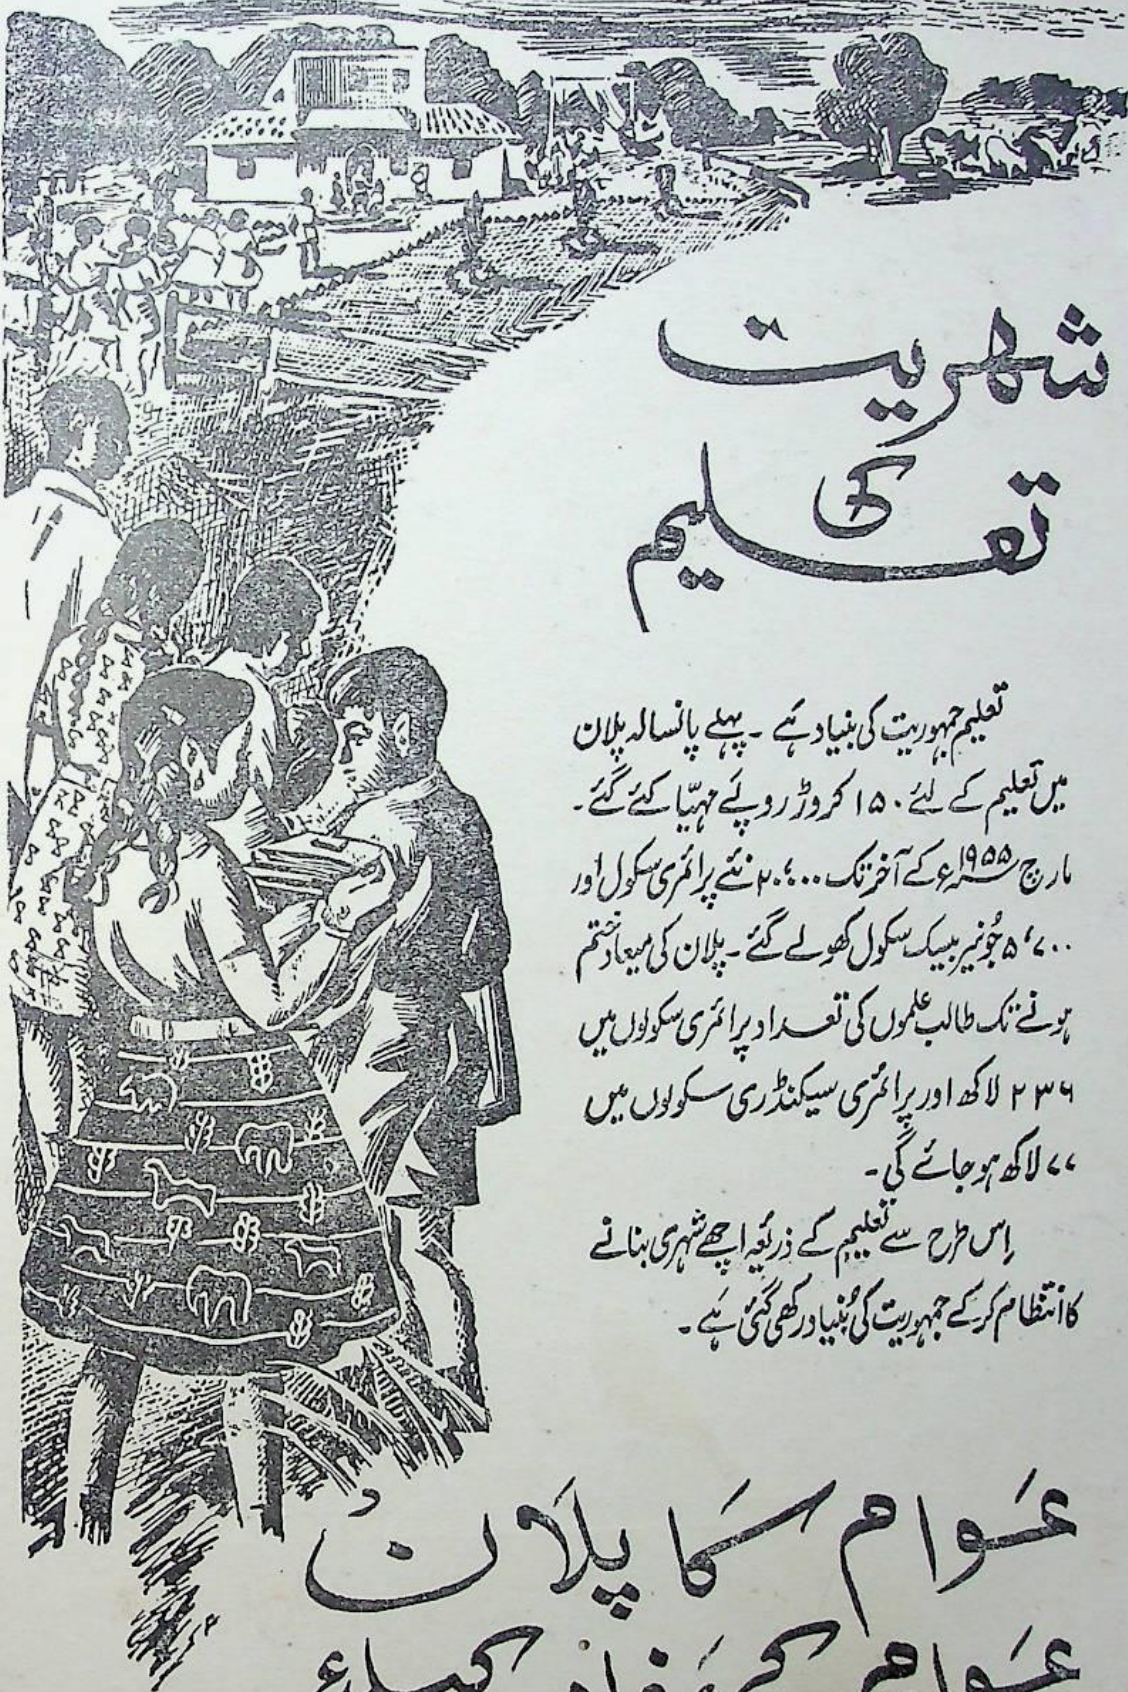 شہریت
کی
تعلیم
تعلیم جمہوریت کی بنیاد ہے۔ پہلے پانسالہ پلان
میں تعلیم کے لئے ۱۵۰ کروڑ روپے مہیّا کئے گئے۔
مارچ ۱۹۵۵ء کے آخر تک ۲۰٬۰۰۰ نئے پرائمری سکول اور
۵٬۷۰۰ جُونیر بیسک سکول کھولے گئے۔ پلان کی میعاد ختم
ہونے تک طالب علموں کی تعداد پرائمری سکولوں میں
۲۳۶ لاکھ اور پرائمری سیکنڈری سکولوں میں
۷۷ لاکھ ہو جائے گی۔
اِس طرح سے تعلیم کے ذریعہ اچھے شہری بنانے
کا انتظام کرکے جمہوریت کی بُنیاد رکھی گئی ہے۔
عَوام کا پلان
عَوام کے کیلئے